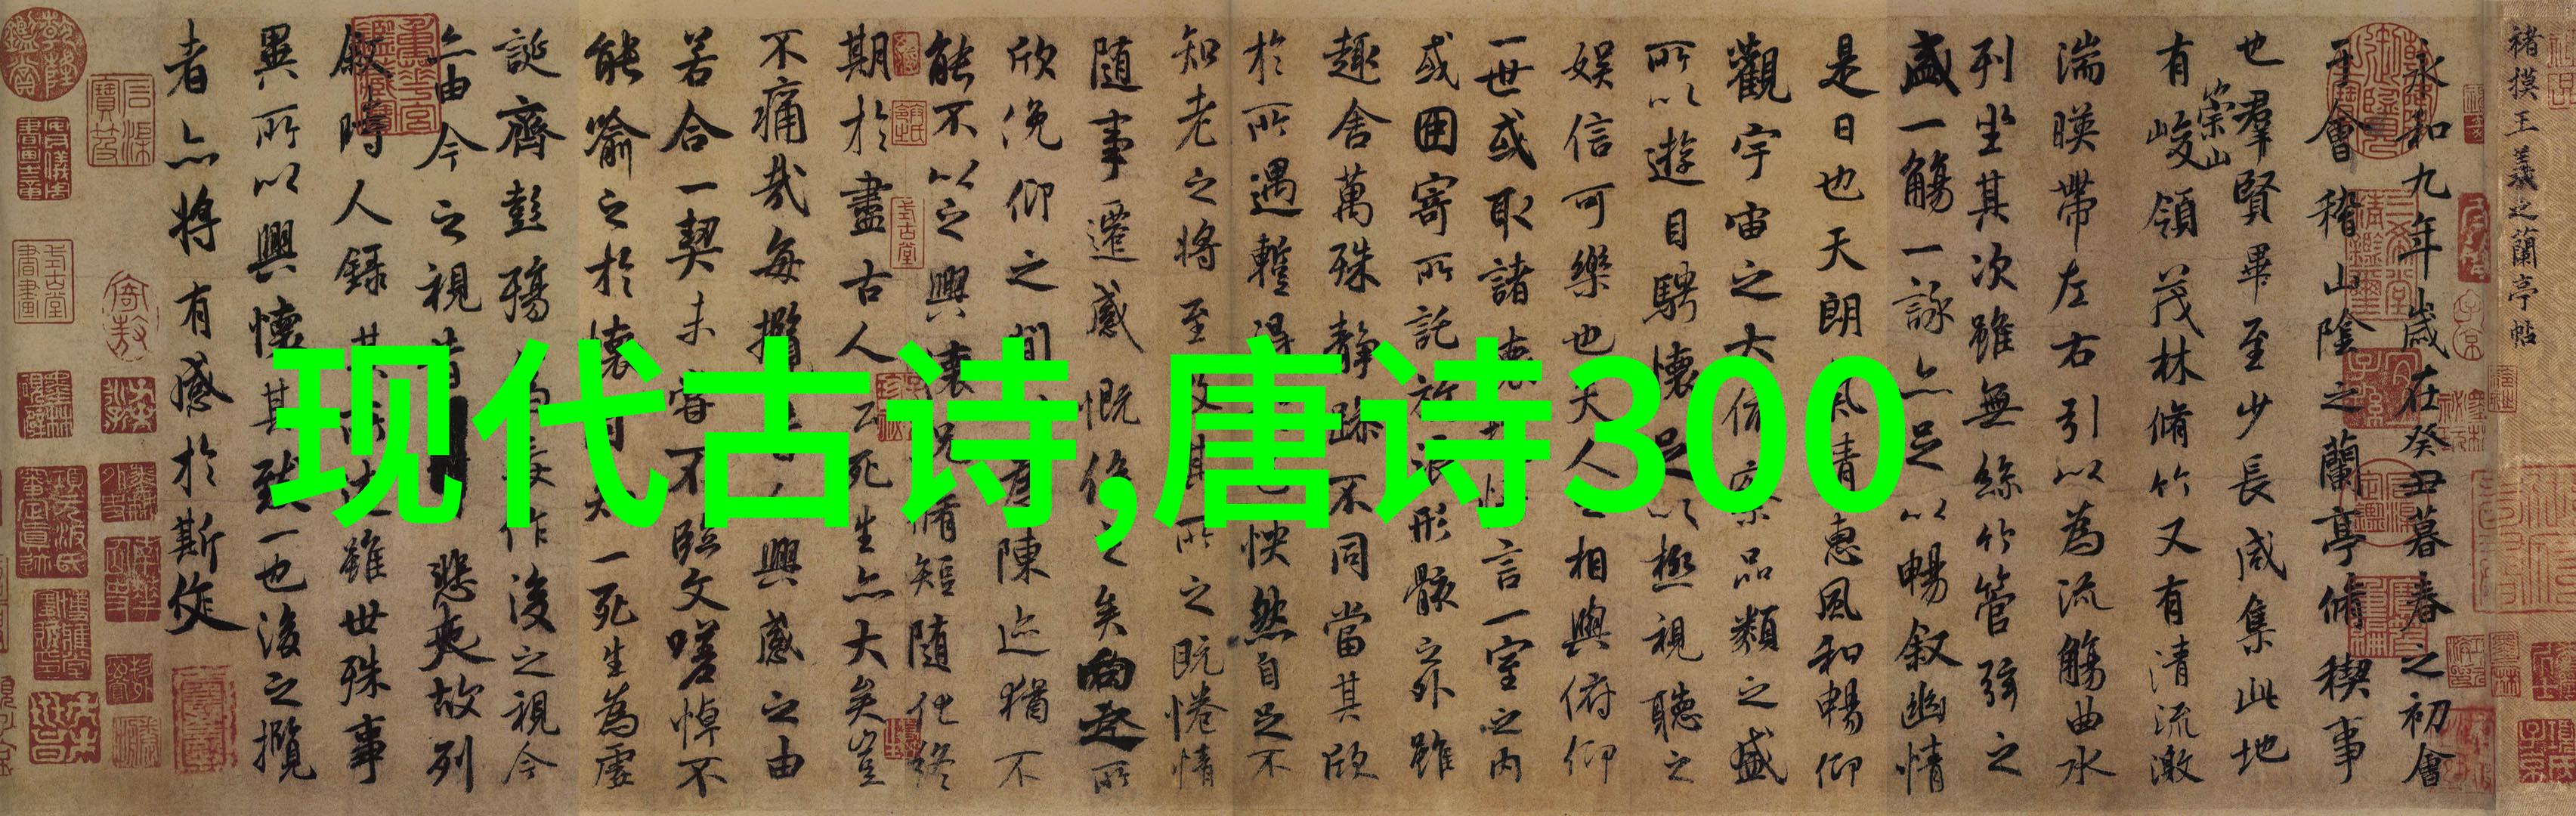 褚摸王羲之蘭亭帖
永和九年歲在癸丑暮春之初會
于會稽山陰之蘭亭脩稧事
也羣賢畢至少長咸集此地
有崇山峻領茂林脩竹又有清流激
湍暎帶左右引以為流觴曲水
列坐其次雖無絲竹管弦之
盛一觴一詠亦足以暢叙幽情
是日也天朗風清惠風和暢仰
觀宇宙之大俯察品類之盛
所以遊目騁懷足以極視聽之
娛信可樂也夫人之相與俯仰
一世或取諸懷言一室之內
或因寄所託放浪形骸之外雖
趣舍萬殊静躁不同當其欣
於所遇蹔得怏然自足不
知老之將至及其所之既惓情
隨事遷感慨係之矣向之所
欣俛仰之間陳迹猶不
能不以之興懷況脩短隨化終
期於盡古人云死生亦大矣豈
不痛哉每攬人興感之由
若合一契未嘗不臨文嗟悼不
能喻之於懷一死生為虛
誕齊彭殤作後之視今
亦由今之視昔悲夫故列
叙時人錄其雖世殊事
異所以興懷其致一也後之攬
者亦將有感於斯文
现代古诗,唐诗300